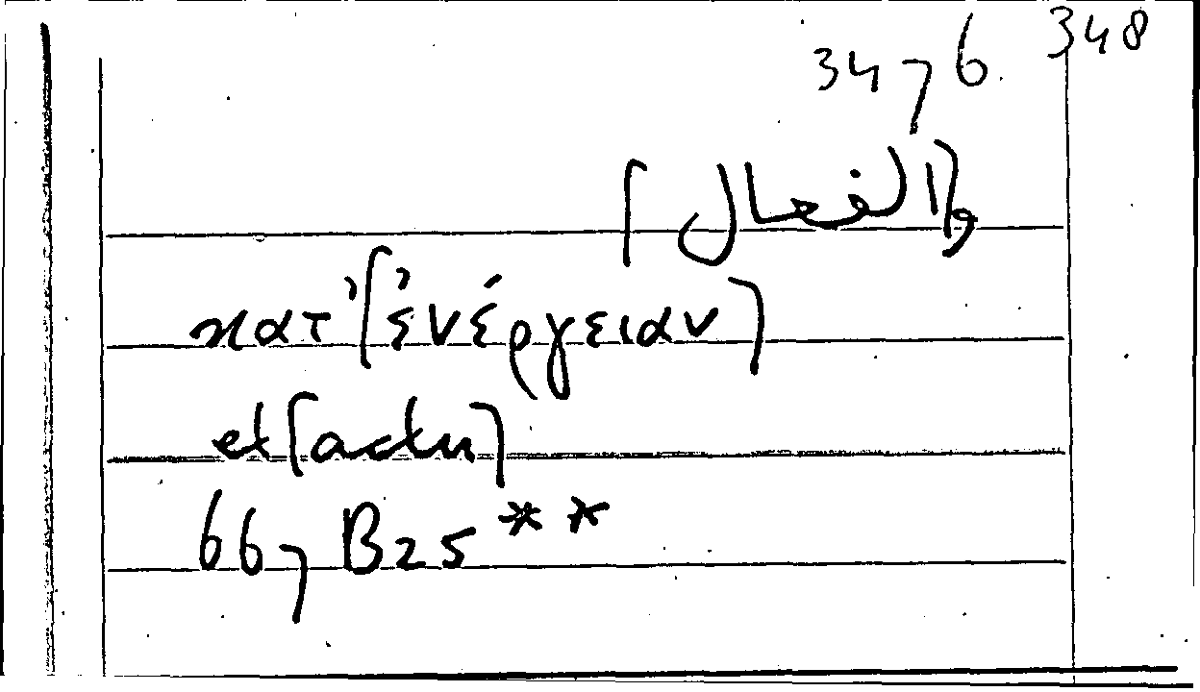 34,6 348
و[الفعال]
κατ’[ἐνέργειαν]
et[actu]
66,B25**